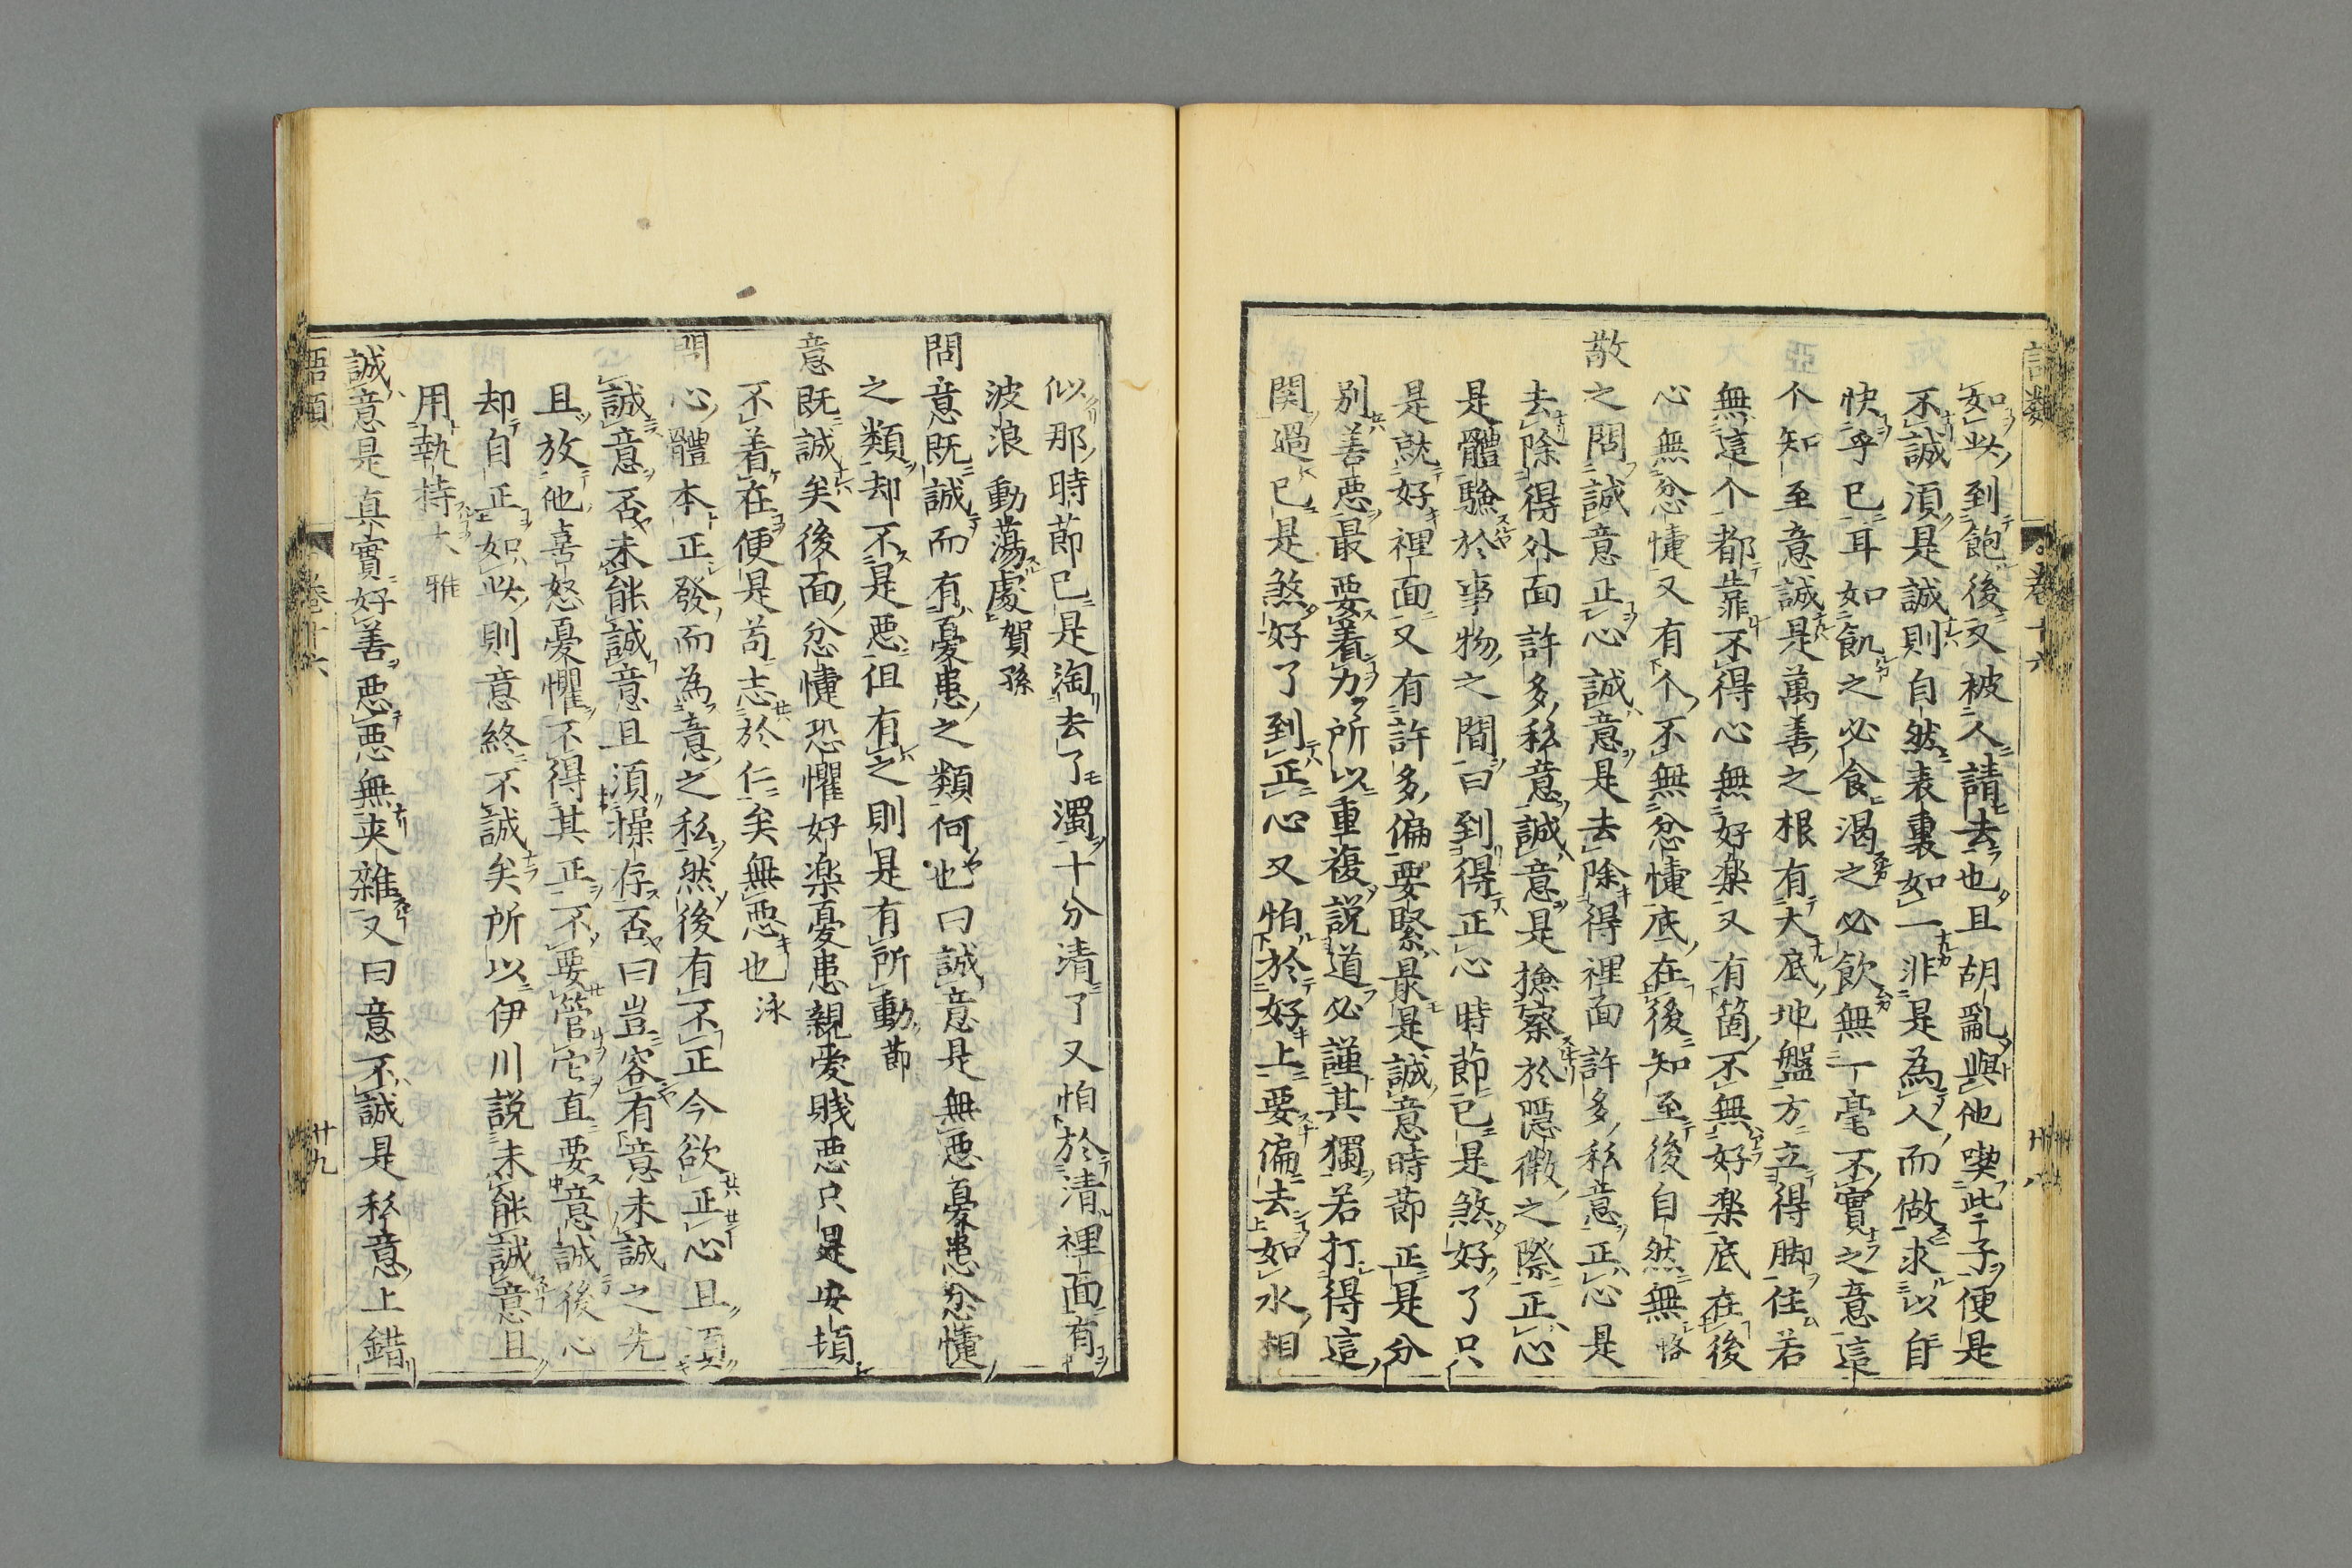 如此到飽後又被人請去也且胡亂與他喫些子便是
不誠須是誠則自然表裏如一非是為人而做求以自
快乎已耳如飢之必食渴之必飲無一毫不實之意這
个知至意誠是萬善之根有大底地盤方立得脚住若
無這个都靠不得心無好楽又有箇不無好楽底在後
心無忿懥又有个不無忿懥底在後知至後自然無恪
敬之問誠意正心誠意是去除得裡面許多私意正心是
去除得外面許多私意誠意是撿察於隱微之際正心
是體驗於事物之間曰到得正心時節已是煞好了只
是就好裡面又有許多偏要緊最是誠意時節正是分
別善悪最要着力所以重複説道必謹其獨若打得這
関過已是煞好了到正心又怕於好上要偏去如水相
似那時節已是淘去了濁十分清了又怕於清裡面有
波浪動蕩處賀孫
問意既誠而有憂患之類何也曰誠意是無悪憂患忿懥
之類却不是悪但有之則是有所動節
意既誠矣後面忿懥恐懼好楽憂患親愛賤悪只是安頓
不着在便是苟志於仁矣無悪也泳
問心體本正發而為意之私然後有不正今欲正心且須
誠意否未能誠意且須操存否曰豈容有意未誠之先
且放他喜怒憂懼不得其正不要管它直要意誠後心
却自正如此則意終不誠矣所以伊川説未能誠意且
用執持大雅
誠意是真實好善悪悪無夾雜又曰意不誠是私意上錯
語類
巻十六
廿九